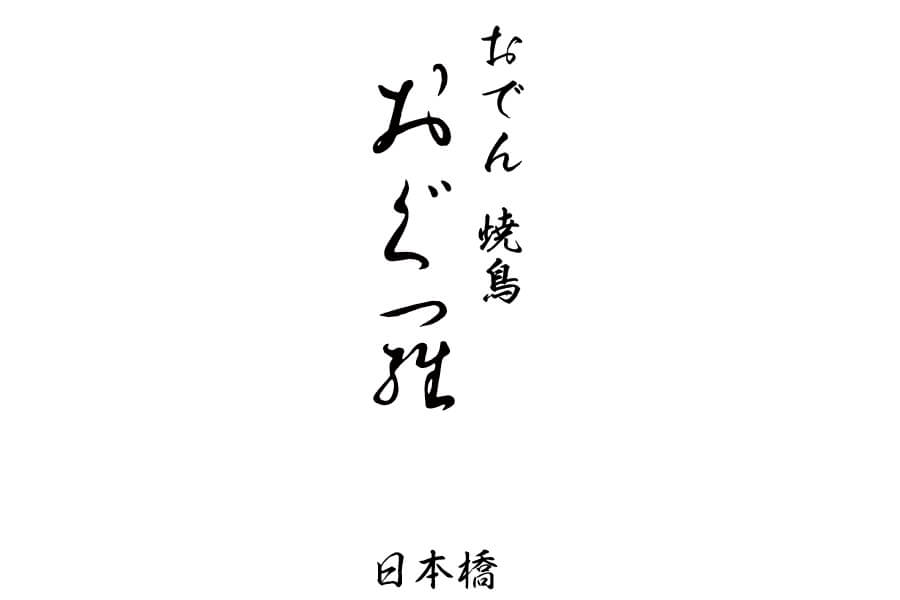 おでん 焼鳥
おぐ羅
日本橋